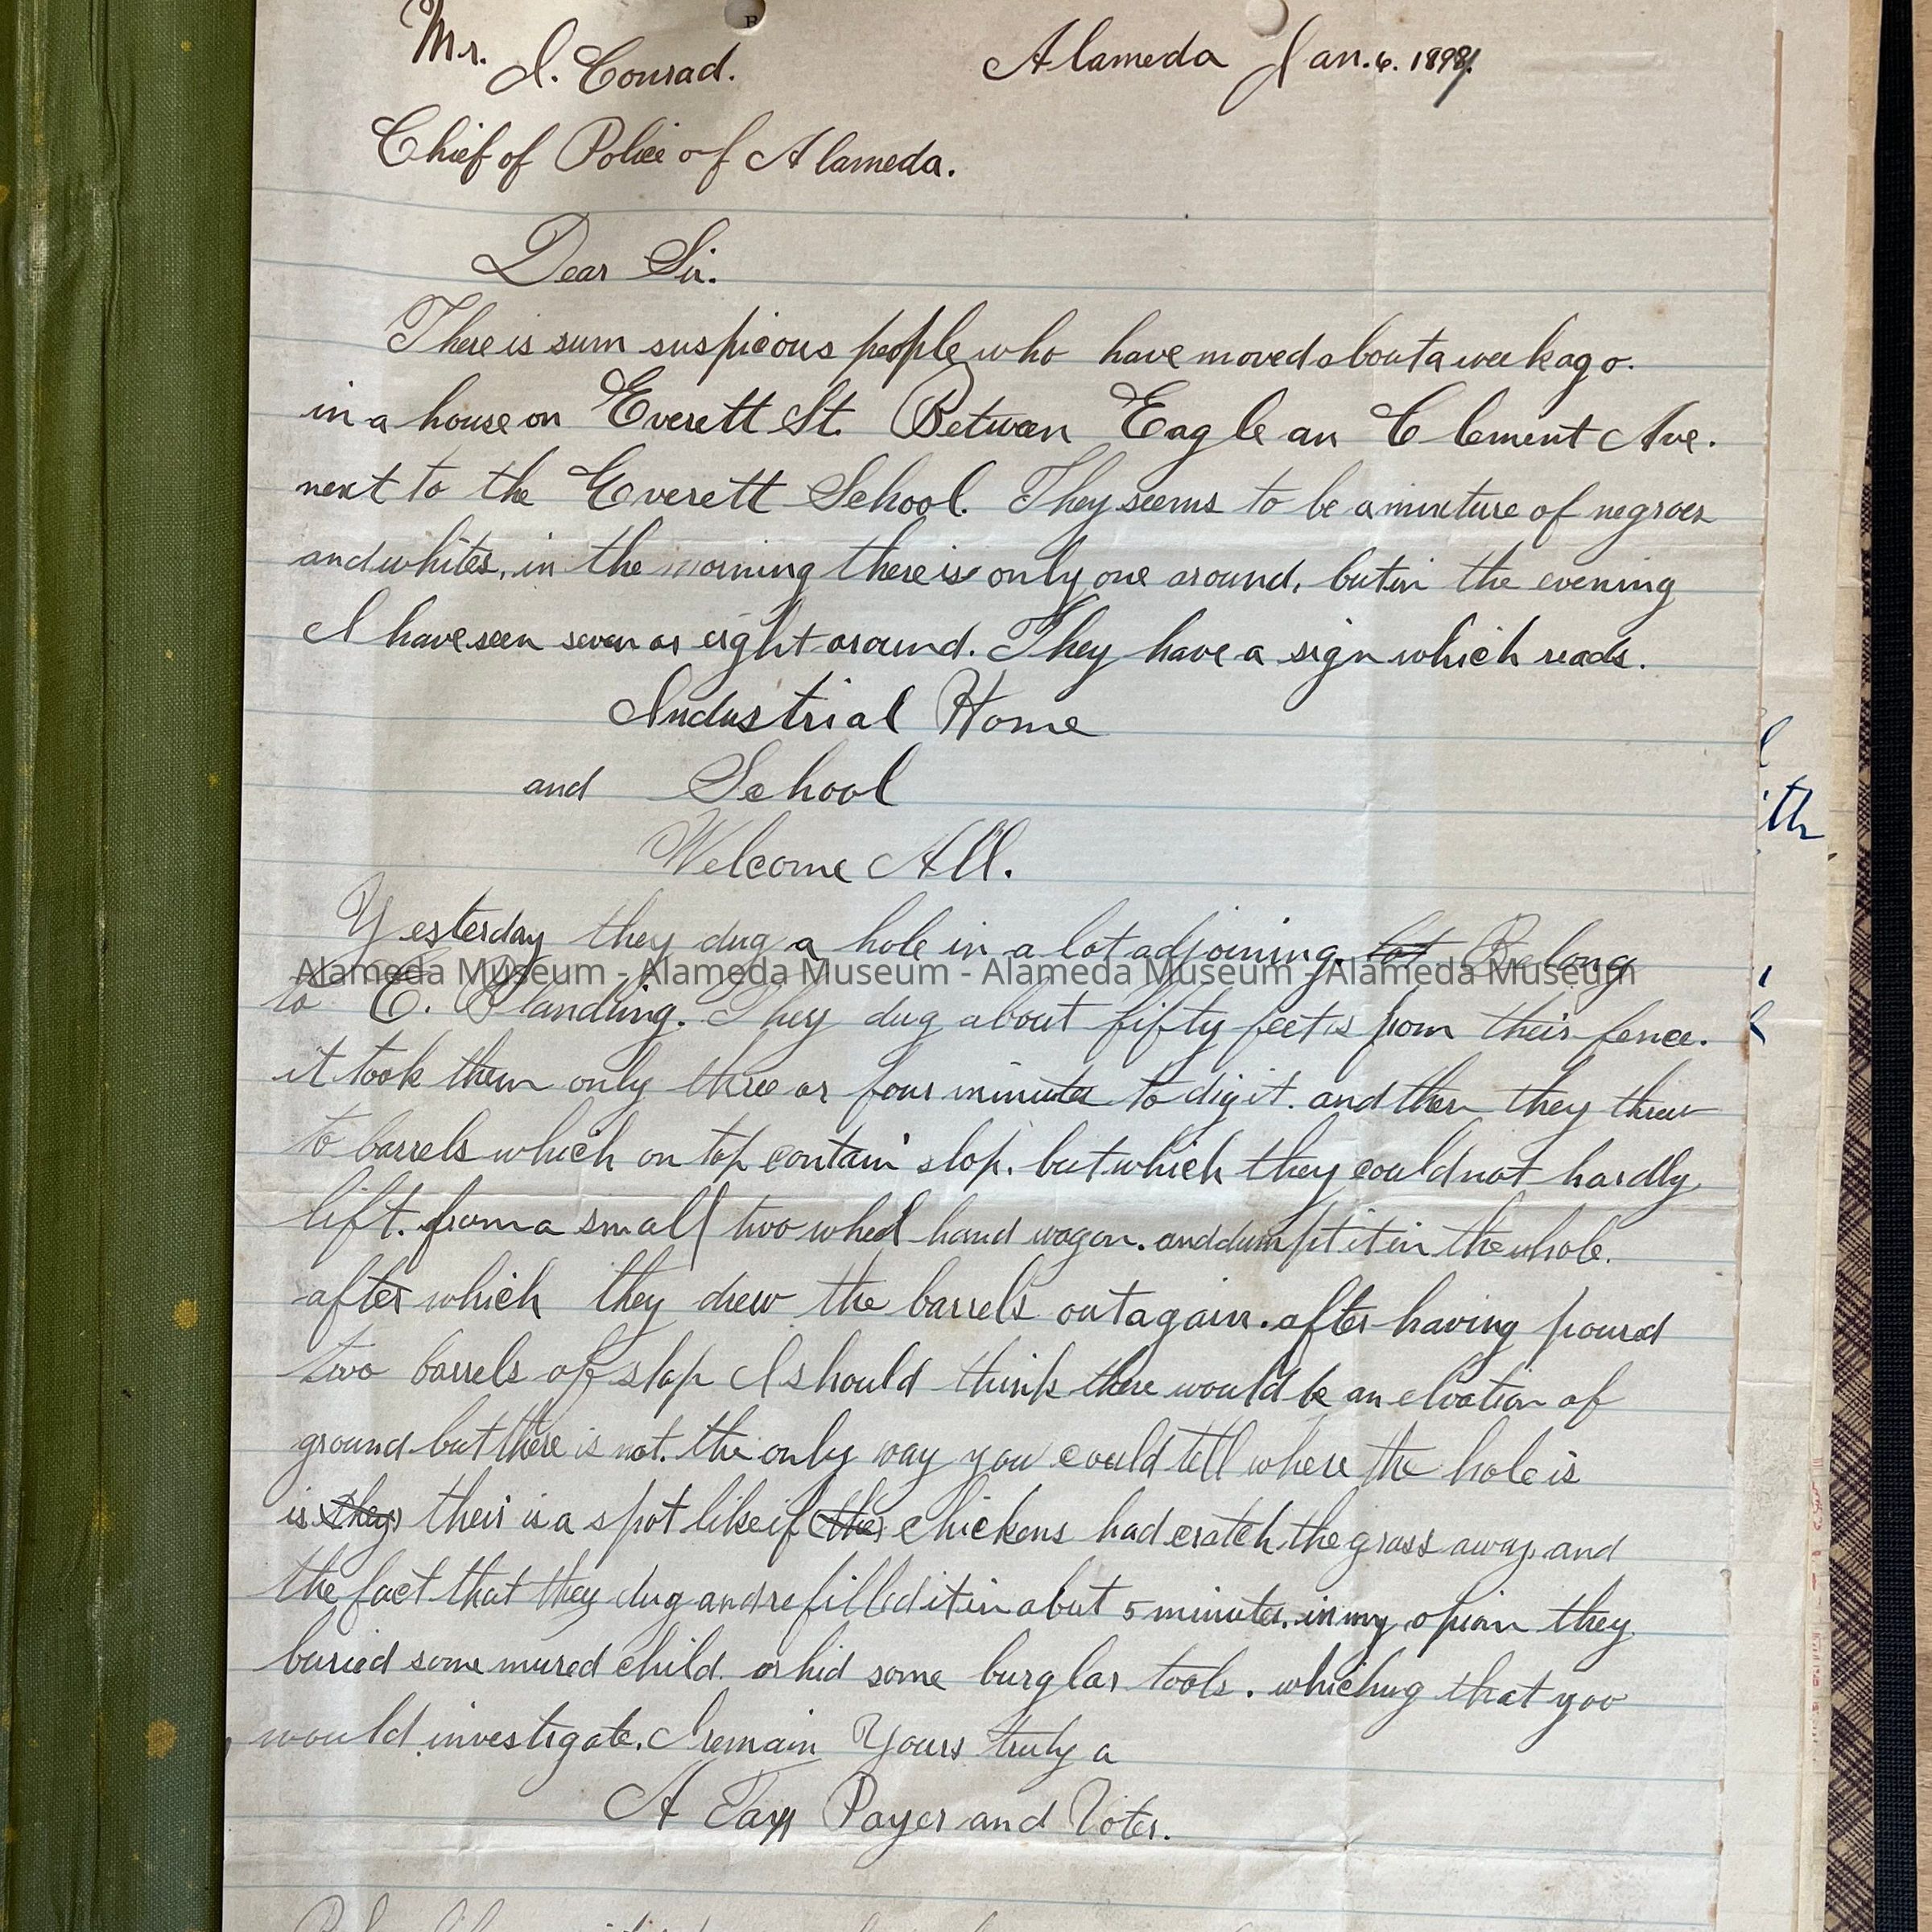 Mr. I. Conrad. Alameda Jan. 6. 1898.
Chief of Police of Alameda.
Dear Sir.
There is sum suspicious people who have moved about a week ago.
in a house on Everett St. Betwen Eagle an Clement Ave.
next to the Everett School. They seems to be a mixture of negroes
and whites, in the morning there is only one around, but in the evening
I have seen seven or eight around. They have a sign which reads.
Industrial Home
and School
Welcome All.
Yesterday they dug a hole in a lot adjoining. lot Belong
Alameda Museum - Alameda Museum - Alameda Museum - Alameda Museum
to C. They dug about fifty feets from their fence.
it took them only three or four minute to dig it. and then they threw
to barrels which on top contain slop. but which they could not hardly
lift. from a small two wheel hand wagon. and dumpt it in the whole.
after which they drew the barrels out again. after having poured
two barrels of slop I should think there would be an elvation of
ground but there is not. the only way you could tell where the hole is
is they their is a spot like if the chickens had cratch the grass away and
the fact that they dug and refilled it in abut 5 minutes. in my opion they
buried some mured child. or hid some burglar tools. whichug that you
would investigate. I remain Yours truly a
A Tax Payer and Voter.
ith